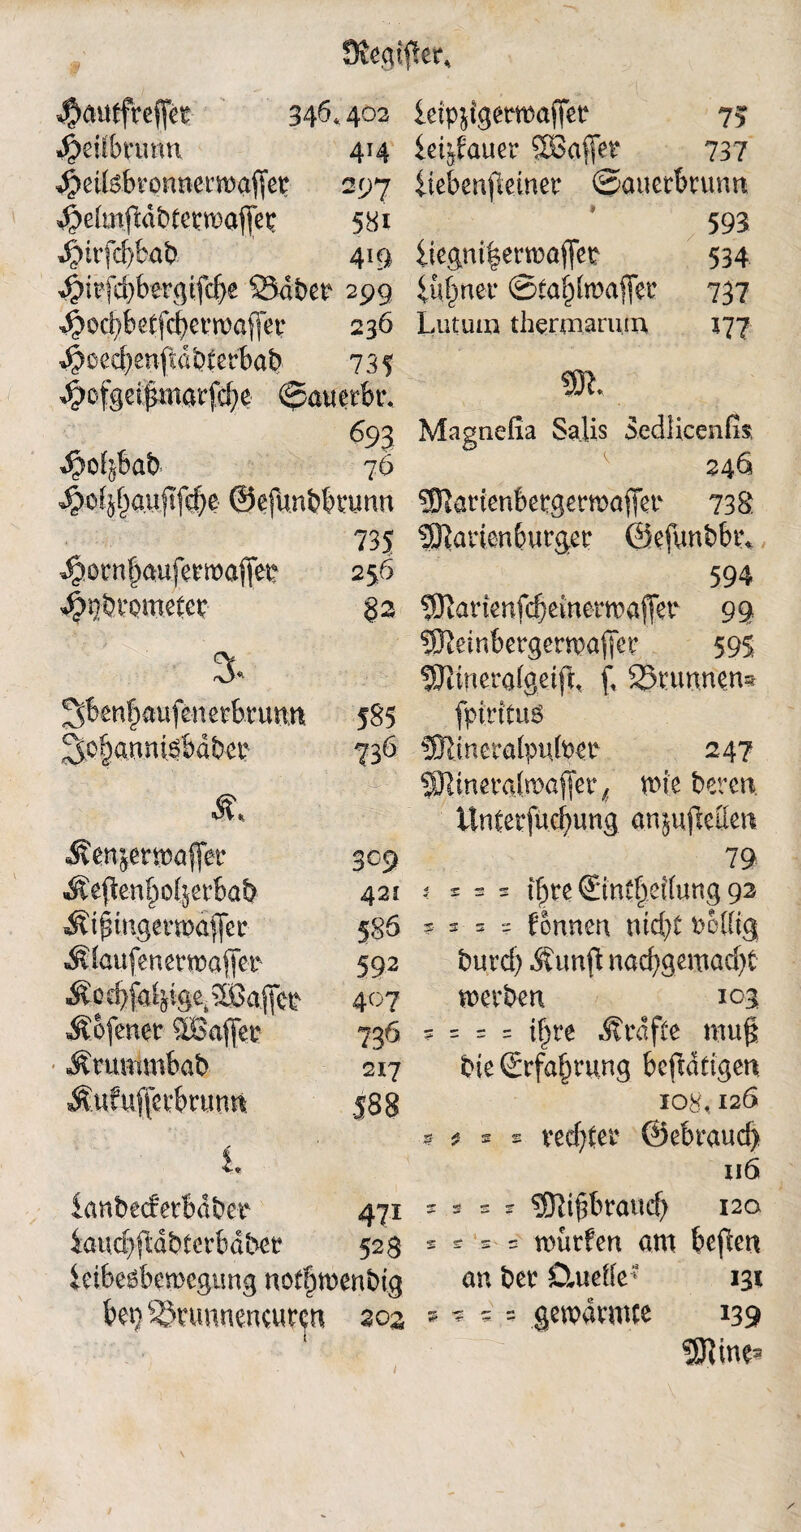 Register.
Hautfresser 346. 402
Heilbrunn 414
Heilsbronnerwasser 297
Helmstädterwasser 581
Hirschbad 419
Hirschbergische Bäder 299
Hochbetscherwasser 236
Hoechenstädterbad 735
Hofgeißmarsche Sauerbr.
693
Holzbad 76
Holzhaustsche Gesundbrunn
735
Hornhauserwasser 256
Hydrometer 82
J.
Ibenhausenerbrunn 585
Johannisbäder 736
K.
Kenzerwasser 309
Kestenholzerbad 421
Kißingerwässer 586
Klausenerwasser 592
Kochsalzige Wasser 407
Kösener Wasser 736
Krummbad 217
Kukusserbrunn 588
L.
Landeckerbäder 471
Lauchstädterbäder 528
Leibesbewegung nothwendig
bey Brunnencuren 202
Leipzigerwasser 75
Leizkauer Wasser 737
Liebensteiner Sauerbrunn
593
Liegnitzerwasser 534
Lühner Stahlwasser 737
Lutum thermarum 177
M.
Magnesia Salis Sedlicensis
246
Marienbergerwasser 738
Marienburger Gesundbr.
594
Marienscheinerwasser 99
Meinbergerwasser 595
Mineralgeist, s. Brunnen=
spiritus
Mineralpulver 247
Mineralwasser, wie deren
Untersuchung anzustellen
79
= = = = ihre Eintheilung 92
= = = = können nicht völlig
durch Kunst nachgemacht
werden 103
= = = = ihre Kräfte muß
die Erfahrung bestätigen
108. 126
= = = = rechter Gebrauch
116
= = = = Mißbrauch 120
= = = = würken am besten
an der Quelle 131
= = = = gewärmte 139
Mine=